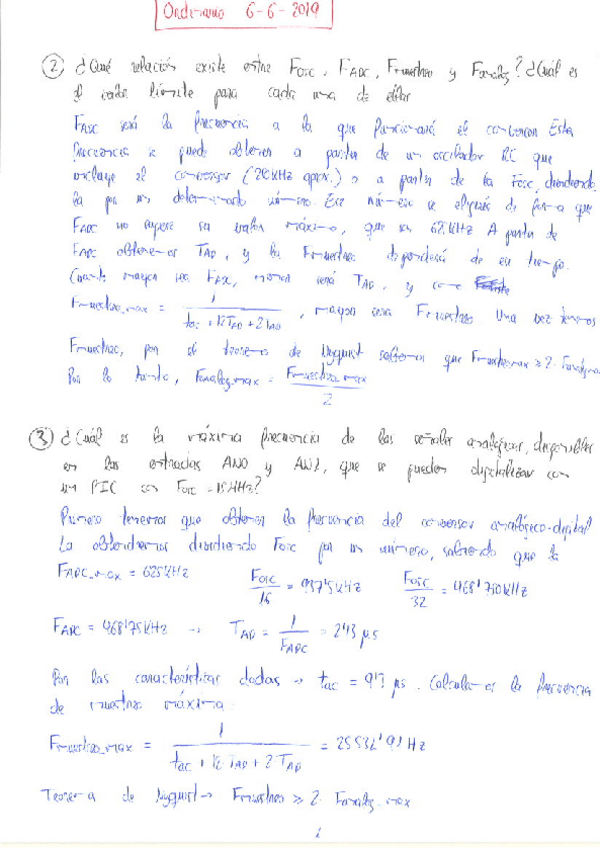 Ordinario 6-6-2019
② ¿Qué relación existe entre Fosc, FADC, Fmuestreo y Fanalog? ¿Cuál es
el valor límite para cada una de ellas
FADC será la frecuencia a la que funcionará el conversor. Esta
frecuencia se puede obtener a partir de un oscilador RC que
incluye el conversor ( aprox.) o a partir de la Fosc, dividiendo
la por un determinado número. Ese número se elegirá de forma que
FADC no supere su valor máximo, que son 625 kHz. A partir de
FADC obtenemos TAD, y la Fmuestreo dependerá de ese tiempo.
Cuanto mayor sea FADC, menor será TAD, y como
Fmuestreo_max = 1 / (tac + 12TAD + 2TAD) , mayor será Fmuestreo. Una vez tenemos
Fmuestreo, por el teorema de Nyquist sabemos que Fmuestreo ≥ 2·Fanalog
Por lo tanto, Fanalog.max = Fmuestreo_max / 2
③ ¿Cuál es la máxima frecuencia de las señales analógicas, disponibles
en las entradas AN0 y AN2, que se pueden digitalizar con
un PIC con Fosc = 15MHz?
Primero tenemos que obtener la frecuencia del conversor analógico-digital.
La obtendremos dividiendo Fosc por un número, sabiendo que la
FADC_max = 625kHz Fosc / 16 = 937'5kHz Fosc / 32 = 468'750kHz
FADC = 468'75kHz → TAD = 1 / FADC = 2'13 μs
Por las características dadas → tac = μs. Calculamos la frecuencia
de muestreo máxima:
Fmuestreo_max = 1 / (tac + 12 TAD + 2 TAD) = 25532' Hz
Teorema de Nyquist → Fmuestreo ≥ 2·Fanalog.max